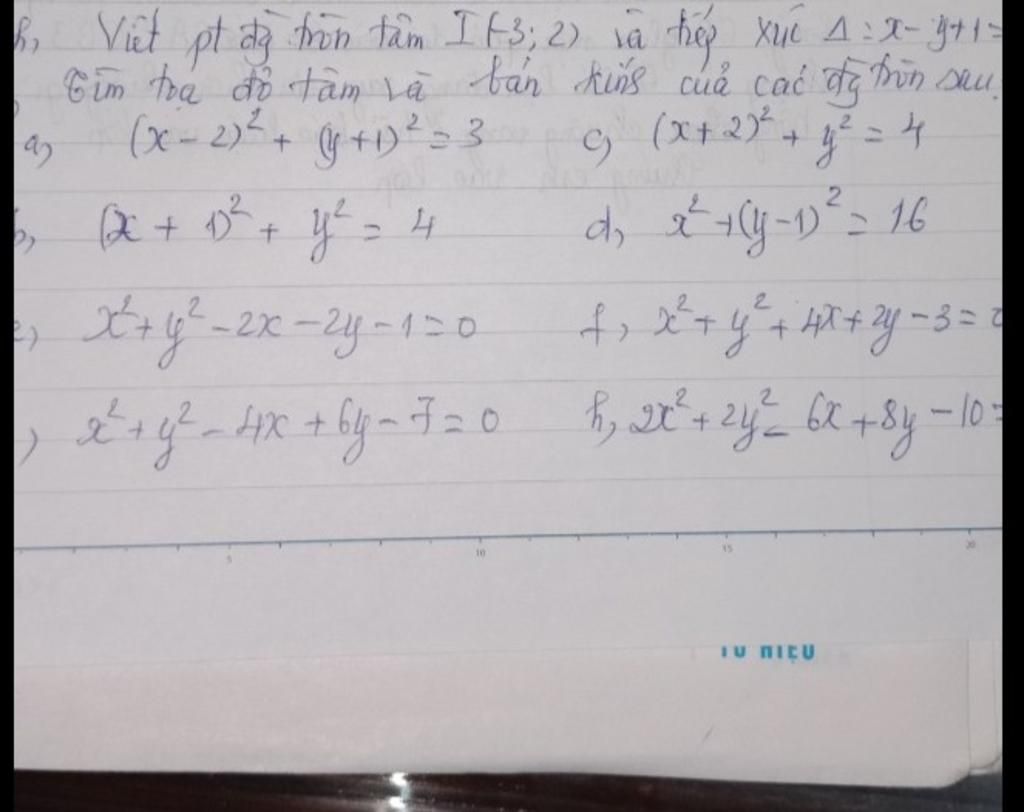 h, Viết pt đg tròn tâm I(-3; 2) và tiếp xúc Δ: x - y + 1 =
Tìm tọa độ tâm và bán kính của các đg tròn sau
a, (x - 2)² + (y + 1)² = 3 c, (x + 2)² + y² = 4
b, (x + 1)² + y² = 4 d, x² + (y - 1)² = 16
e, x² + y² - 2x - 2y - 1 = 0 f, x² + y² + 4x + 2y - 3 = 0
, x² + y² - 4x + 6y - 7 = 0 h, 2x² + 2y² - 6x + 8y - 10 =
5 10 15 20